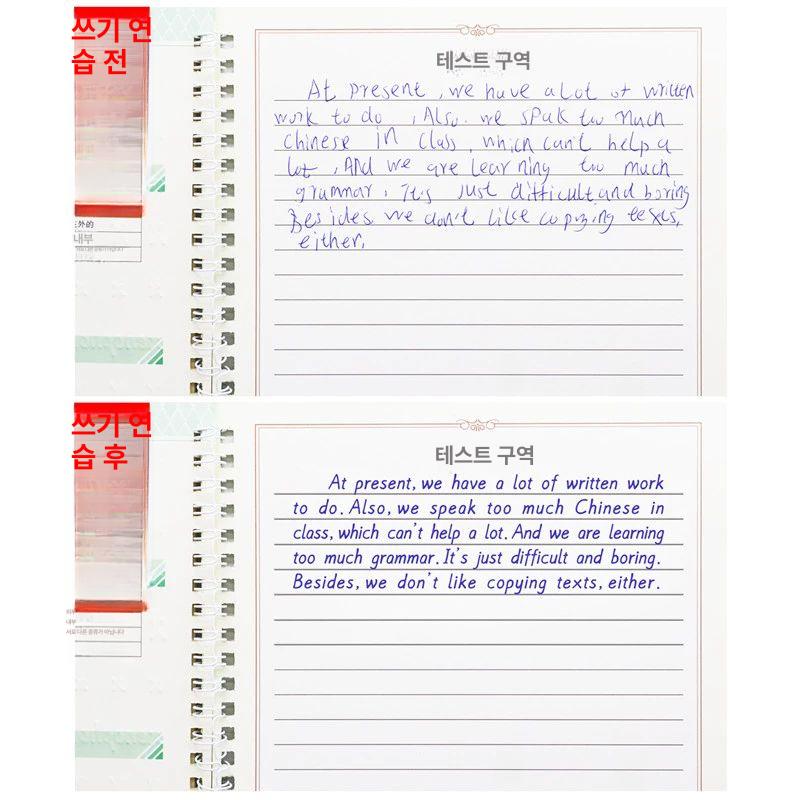 쓰기 연
습 전
테스트 구역
At present, we have a lot of written
work to do , Also. we spak too much
chinese in class, which can't help a
lot , And we are learning too much
grammar. It's just difficult and boring
Besides we don't like copying texts,
either.
生外的
내부
쓰기 연
습 후
테스트 구역
At present, we have a lot of written work
to do. Also, we speak too much Chinese in
class, which can't help a lot. And we are learning
too much grammar. It's just difficult and boring.
Besides, we don't like copying texts, either.
내부
서로 다른 종류가 아닙니다